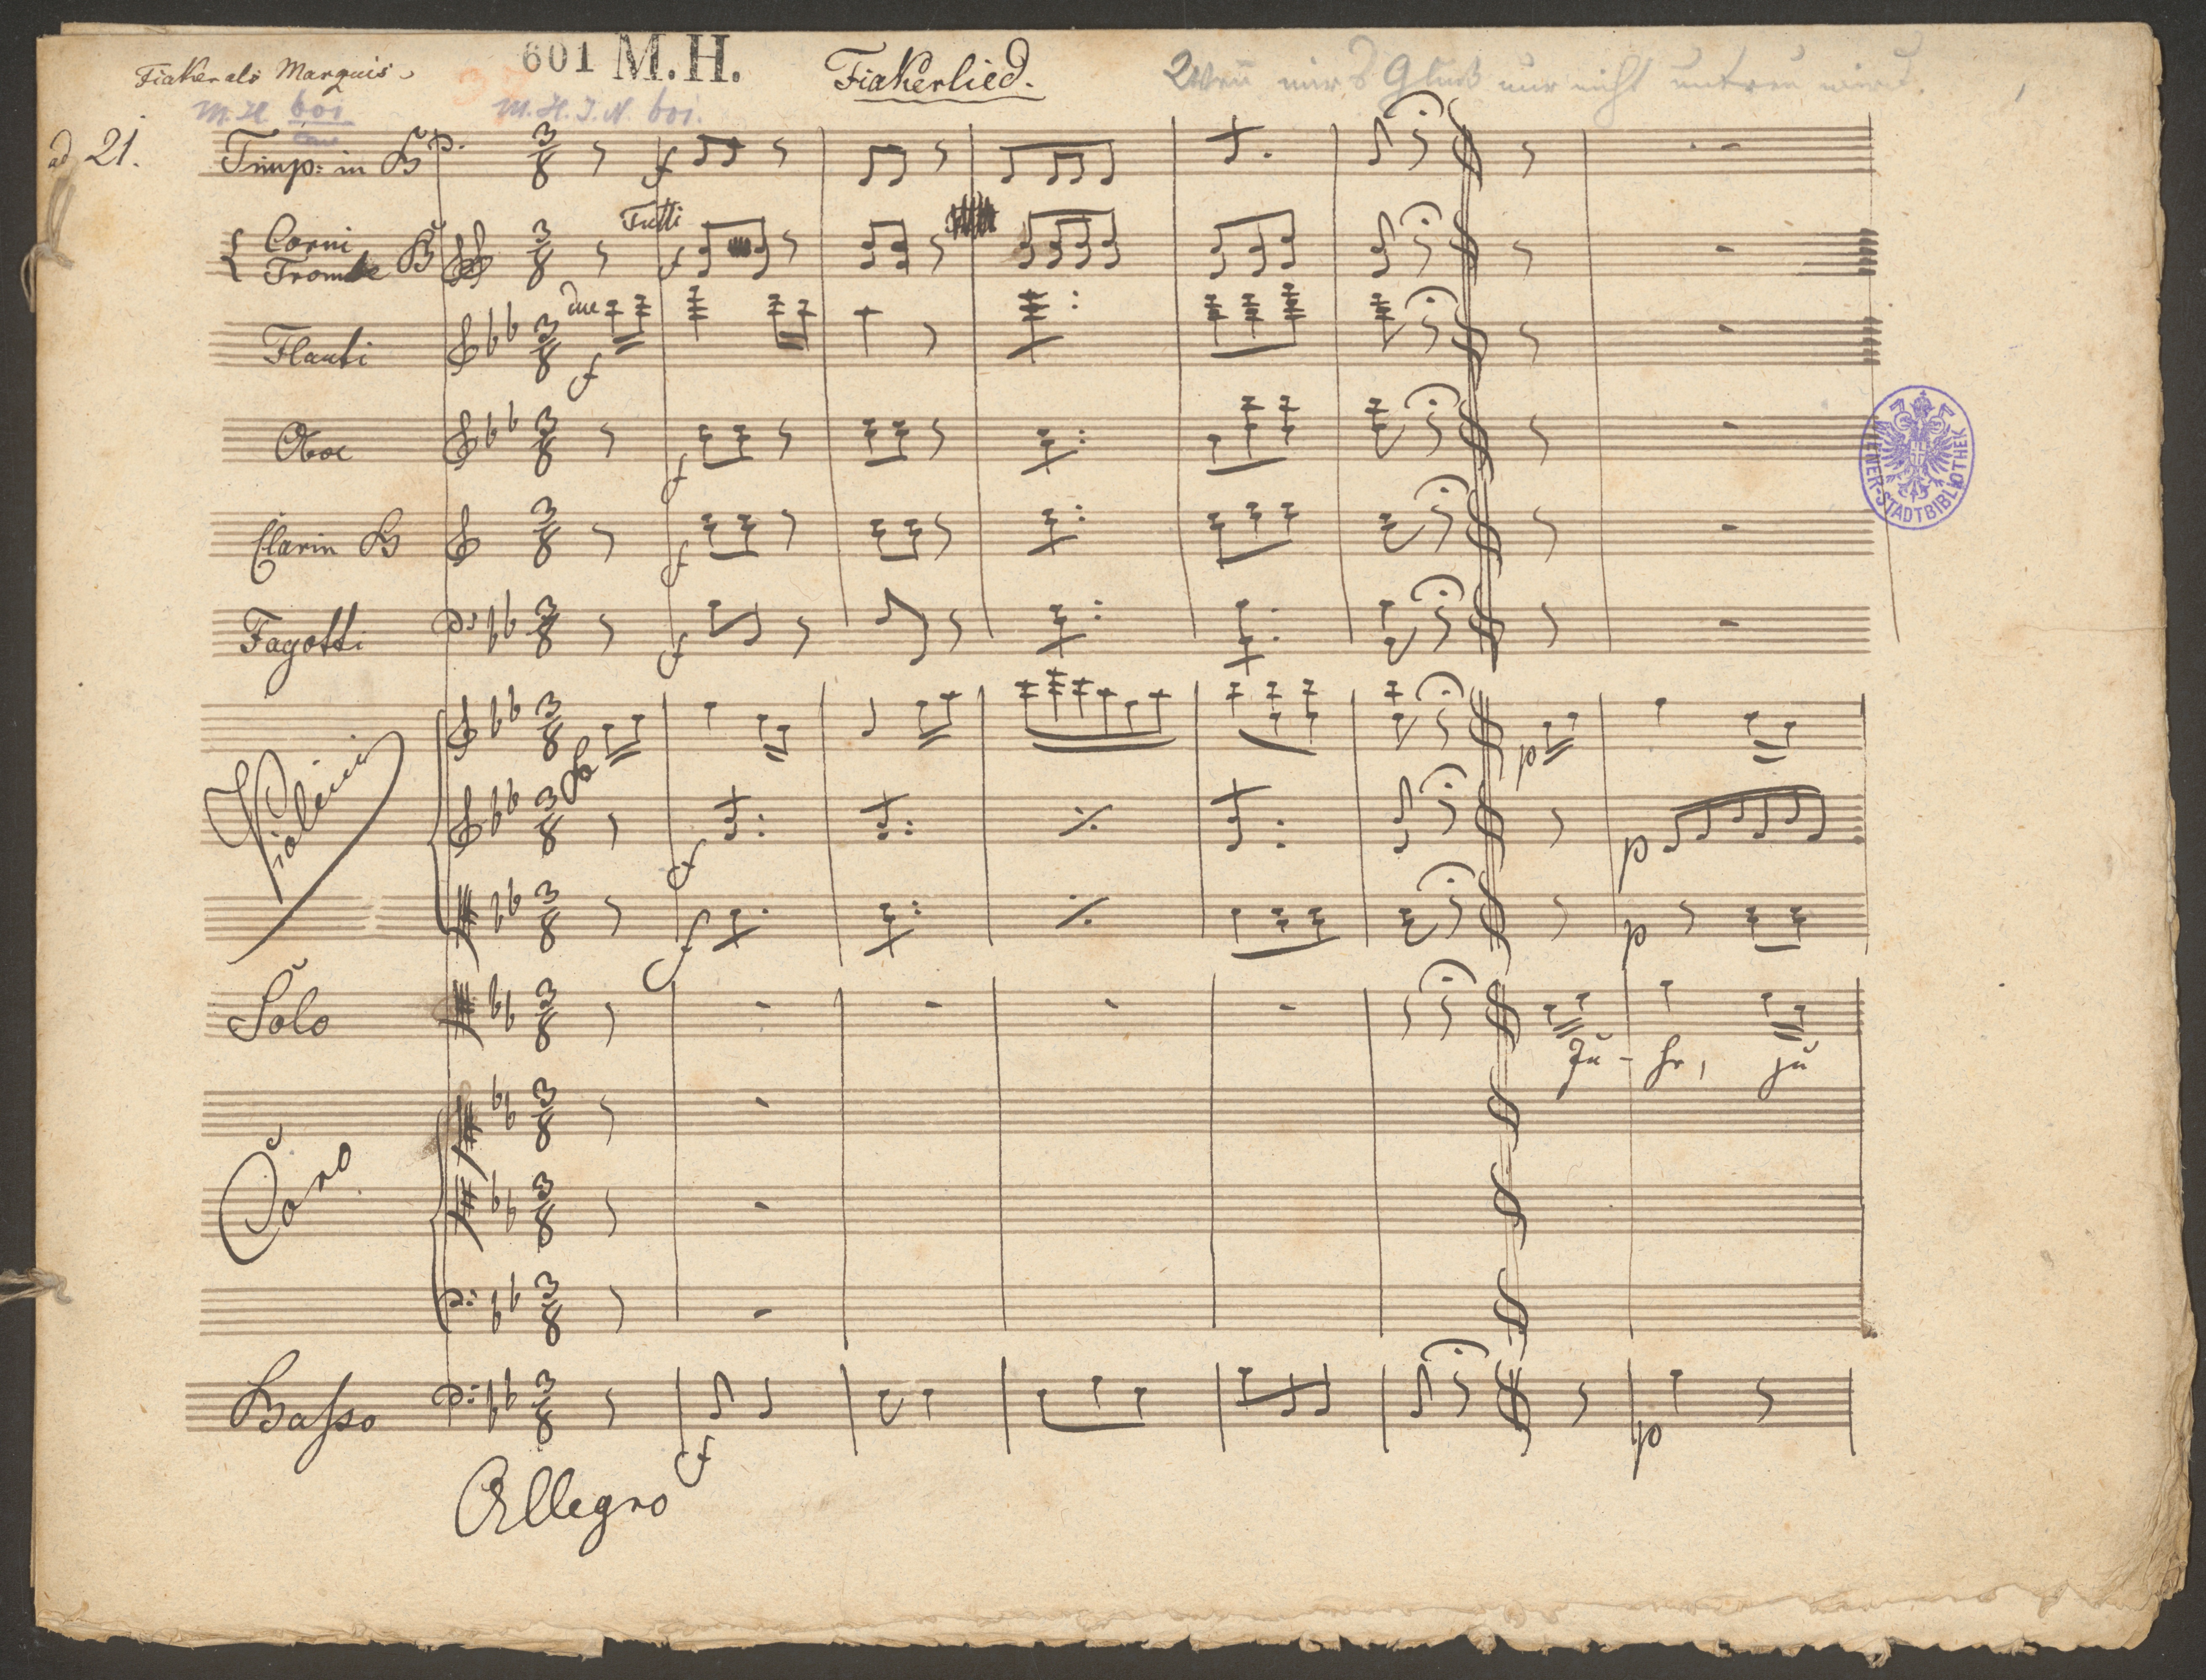 Fiaker als Marquis
601 M.H.
Fiakerlied.
Wenn mir's Glück nur nicht untreu wird.
M. H. 601
M. H. J. N. 601.
ad 21.
Timp: in B
f
Corni
Trombe B
Tutti
f
Flauti
due
f
Oboe
f
Clarin B
f
Fagotti
f
Violini
p
f
p
f
p
Solo
Ju - he, ju
Coro
Basso
f
p
Allegro
WIENER-STADTBIBLIOTHEK